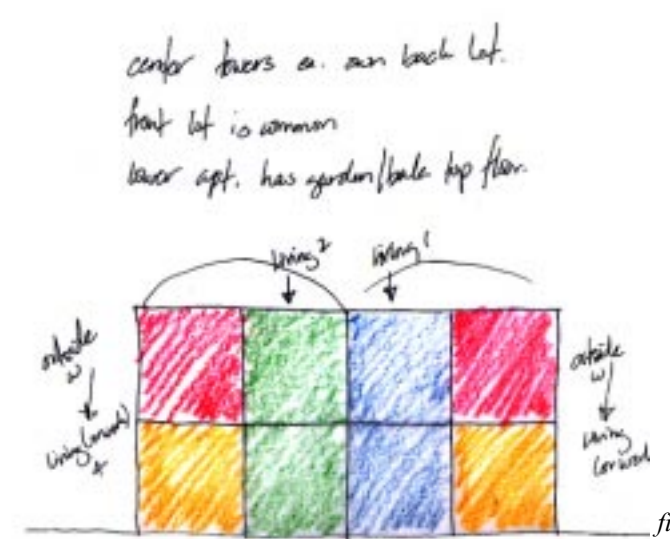 center towers ea. own back lot.
front lot is common
lower apt. has garden/ top floor.
living 2
living 1
outside
w
living
4
outside
w
living
fi